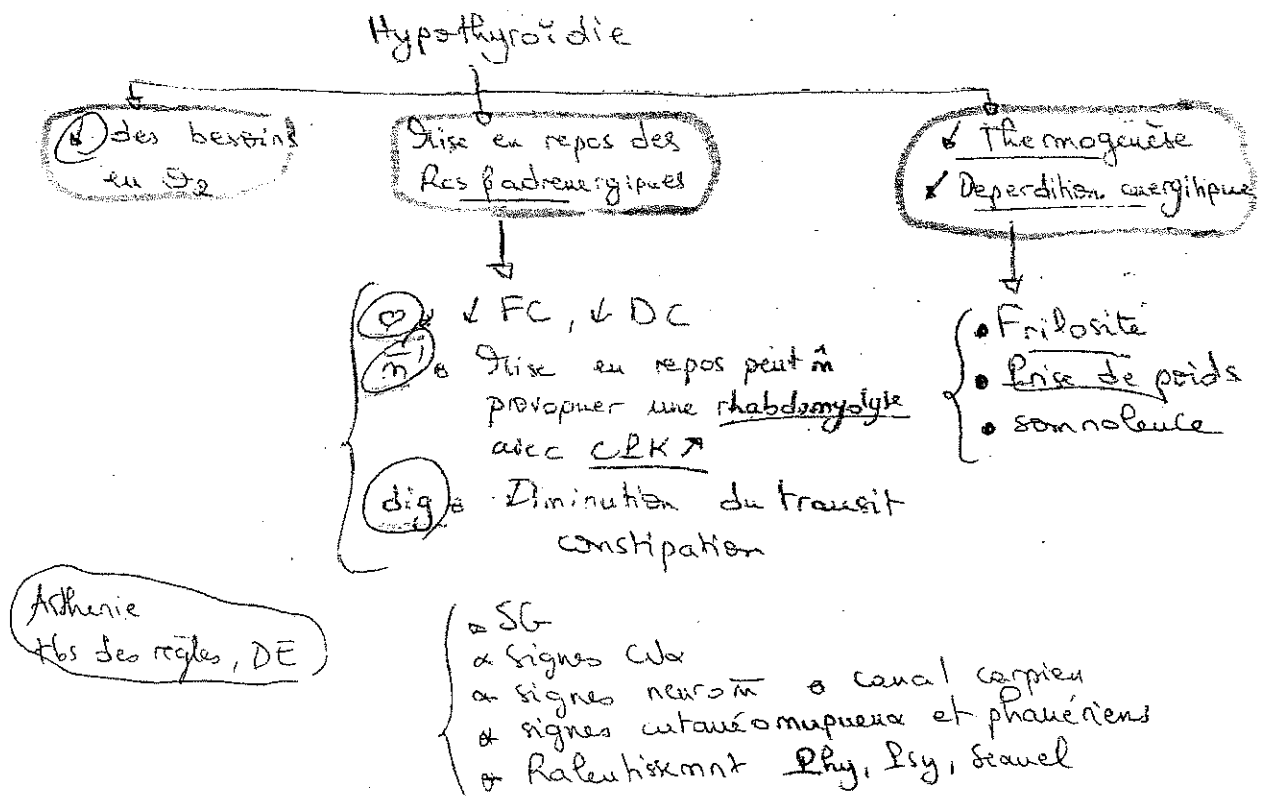 Hypothyroïdie
↓ des besoins
en O2
Mise en repos des
Rcs βadrenergiques
↓ Thermogenèse
↓ Deperdition energitique
♡ ↓ FC, ↓ DC
m̄ Mise en repos peut m̂
provoquer une rhabdomyolyse
avec CPK ↗
dig Diminution du transit
constipation
• Frilosité
• Prise de poids
• somnolence
Asthenie
tbs des règles, DE
SG
signes CVx
signes neuro m̄ canal carpien
signes cutanéomuqueux et phanériens
Ralentissemnt Phy, Psy, sexuel